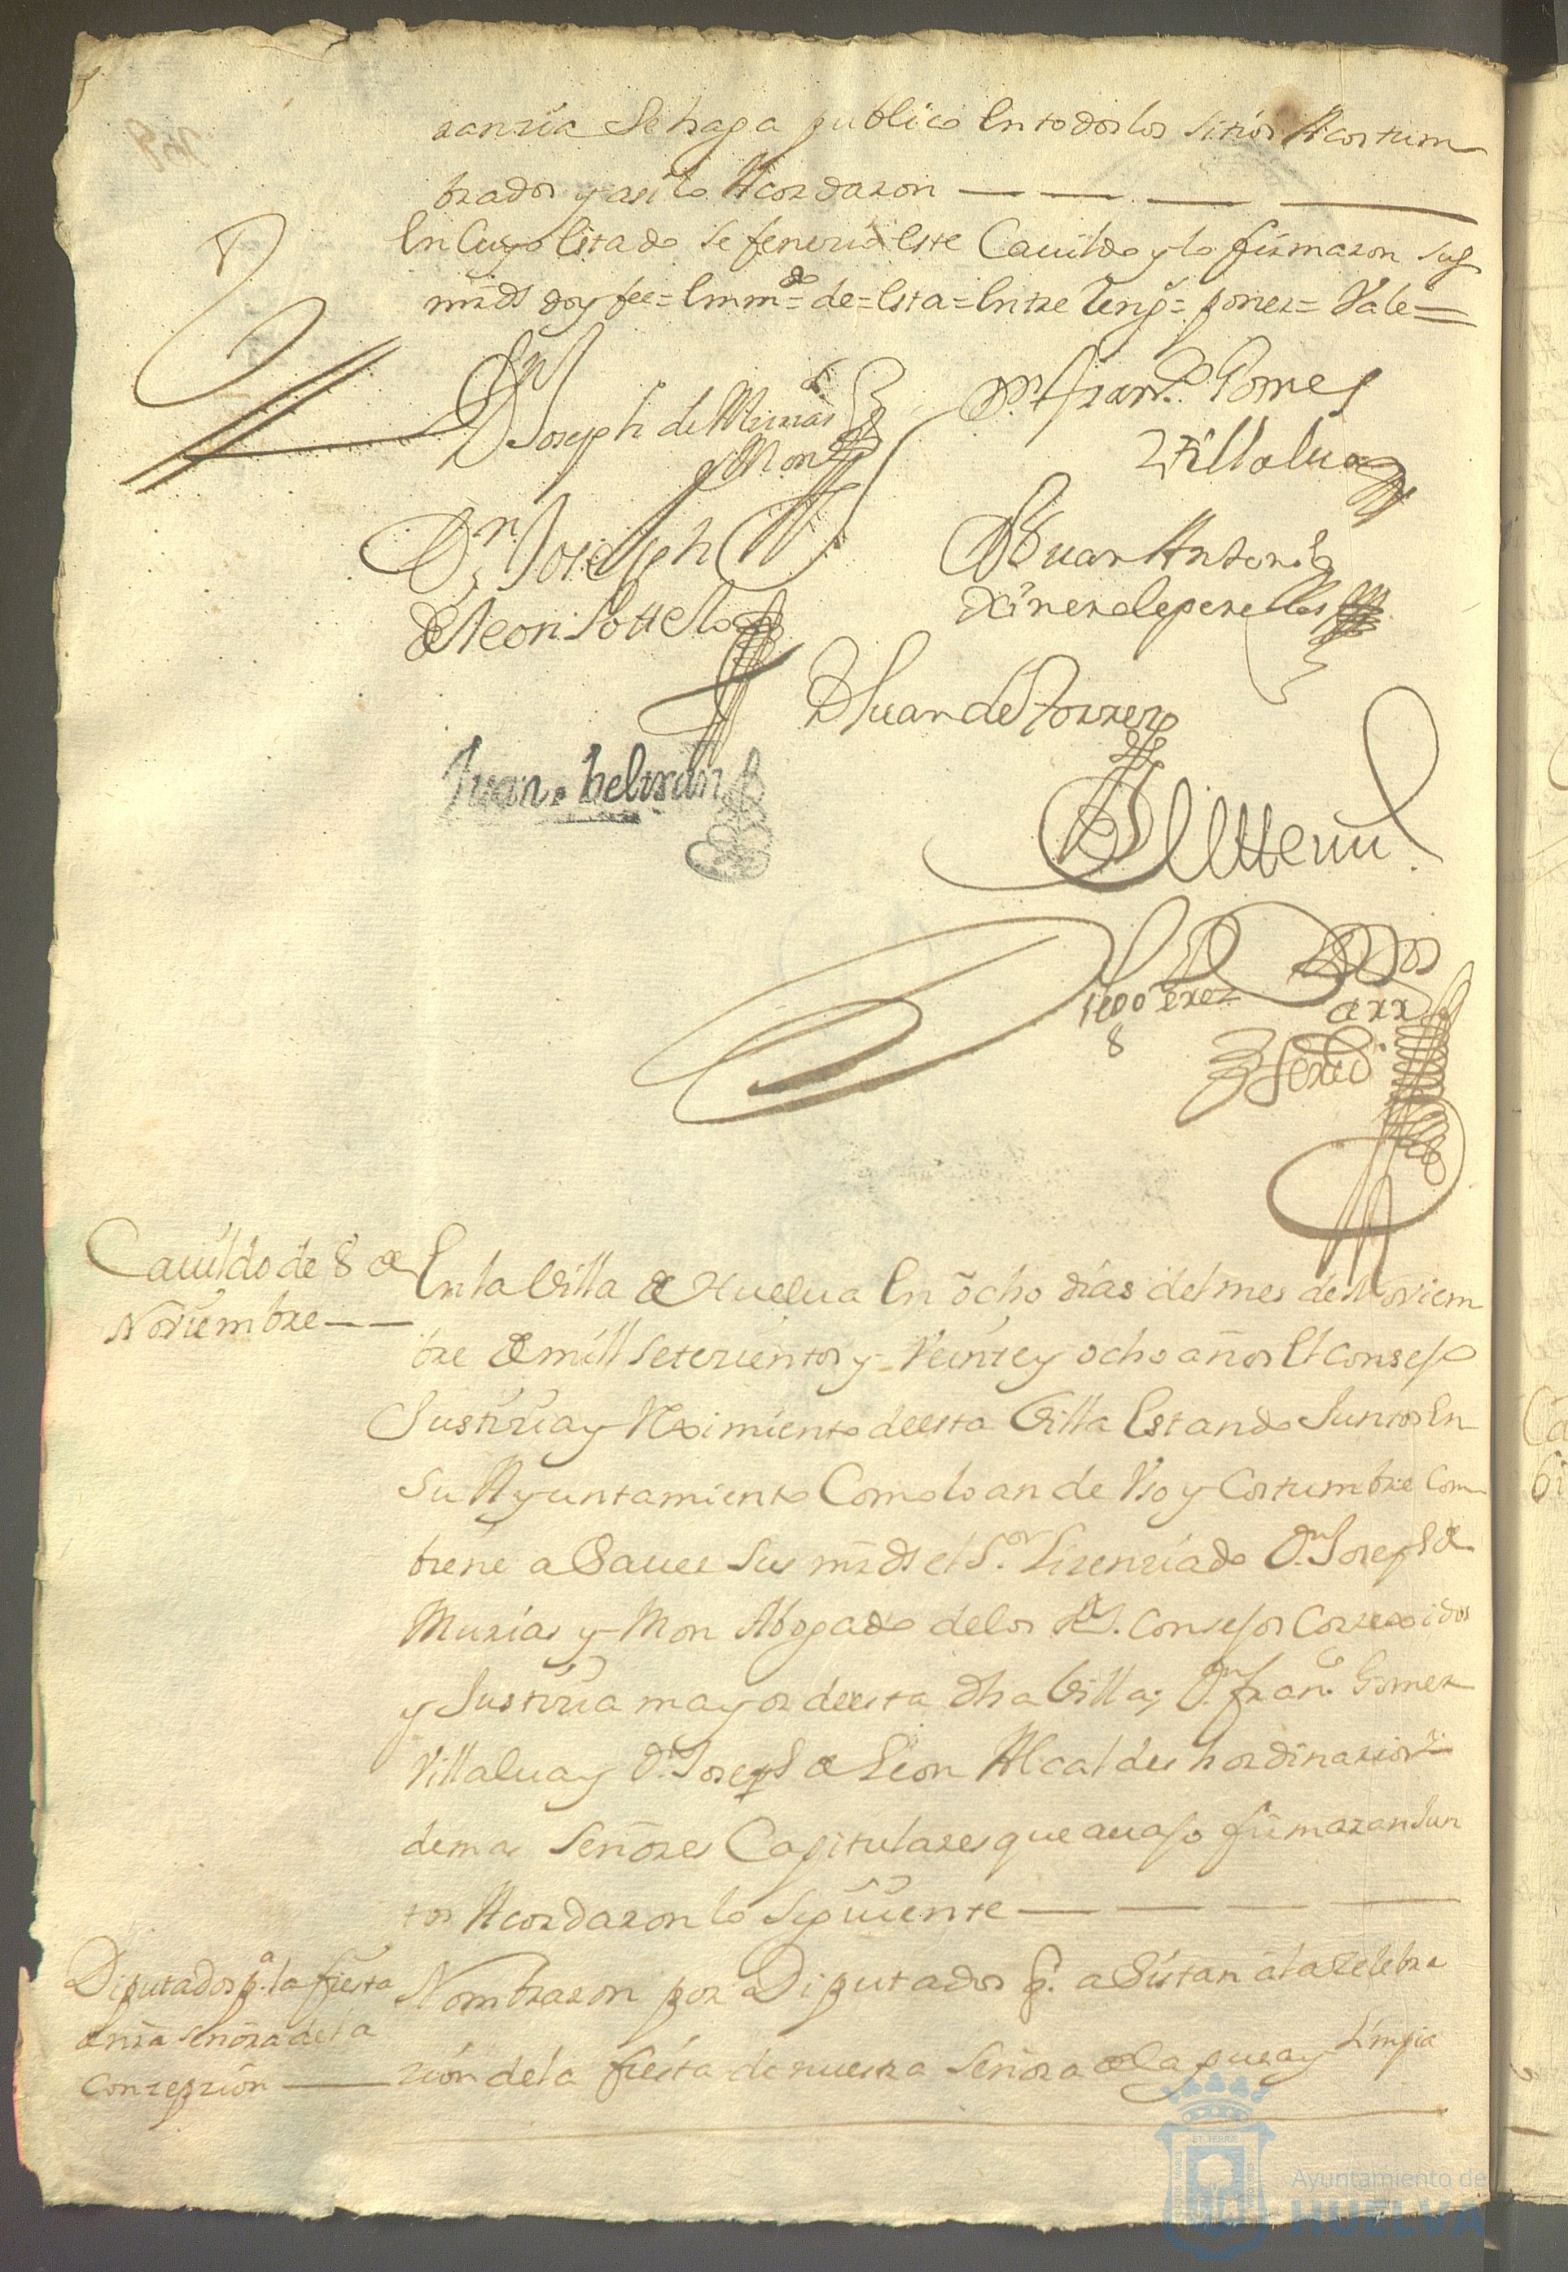 ranzia Se haga publico En todos los sitios Acostum
brados y asi lo Acordaron
En Cuyo Estado se fenezio Este Cauildo y lo firmaron sus
mrds doy fee = Emmdo = de = Esta = Entre Reng.s = poner = Vale =
Dn Joseph de Murias
y Mon
Dn. Fran.co Gomes
Villalua
Dn. Joseph
de Leon Sottelo
D Juan Antonio
Ximenes de perellos
D Juan de Torres
Juan beltrán
Diego Perez
ss.no
Cauildo de 8 de
Noviembre
En la Villa de Huelua En ocho dias del mes de Noviem
bre de mill setezientos y Veinte y ocho años El Consejo
Justizia y Reximiento de esta Villa Estando Juntos En
Su Ayuntamiento Como lo an de Vso y Costumbre Com
biene a Sauer Sus mrds el S.or Lizenziado D.n Joseph de
Murias y Mon Abogado de los R.s Consejos Correxidor
y Justizia mayor de esta dha Villa; D.n Fran.co Gomez
Villalua y D.n Joseph de Leon Alcaldes hordinarios
demas Señores Capitulares que auajo firmaran Jun
tos Acordaron lo Siguiente
Diputados p.a la fiesta
de nra Señora de la
Conzepzion
Nombraron por Diputados p.a aSistan a la Zelebra
zion de la fiesta de nuestra Señora de la pura y Limpia
Ayuntamiento de
HUELVA